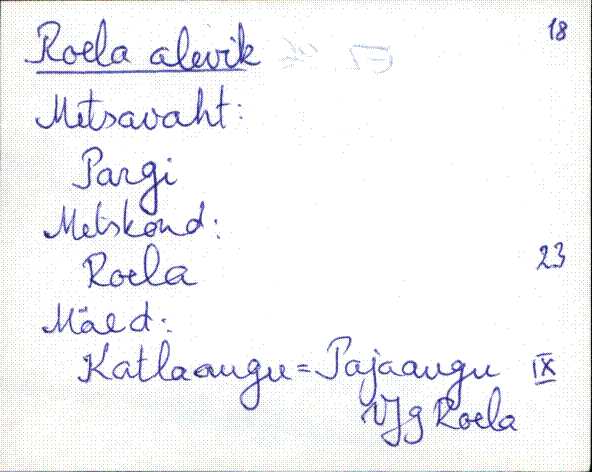 Roela alevik 18
Metsavaht:
Pargi
Metskond:
Roela 23
Mäed:
Katlaaugu = Pajaaugu IX
VJg Roela